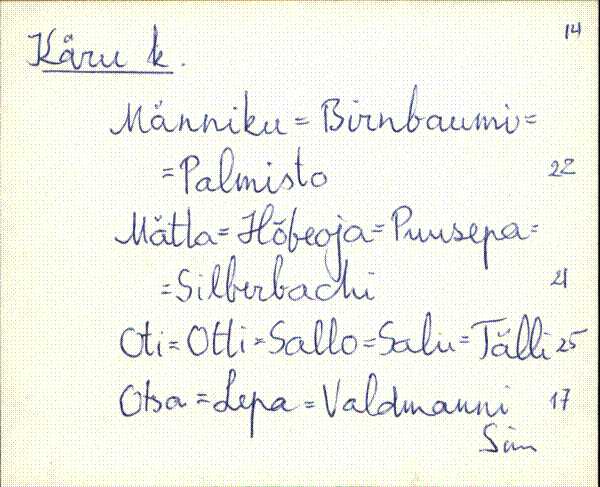 14
Käru k.
Männiku = Birnbaumi =
= Palmisto 22
Mätla = Hõbeoja = Puusepa =
= Silberbachi 21
Oti = Otti = Sallo = Salu = Tälli 25
Otsa = Lepa = Valdmanni 17
Sim